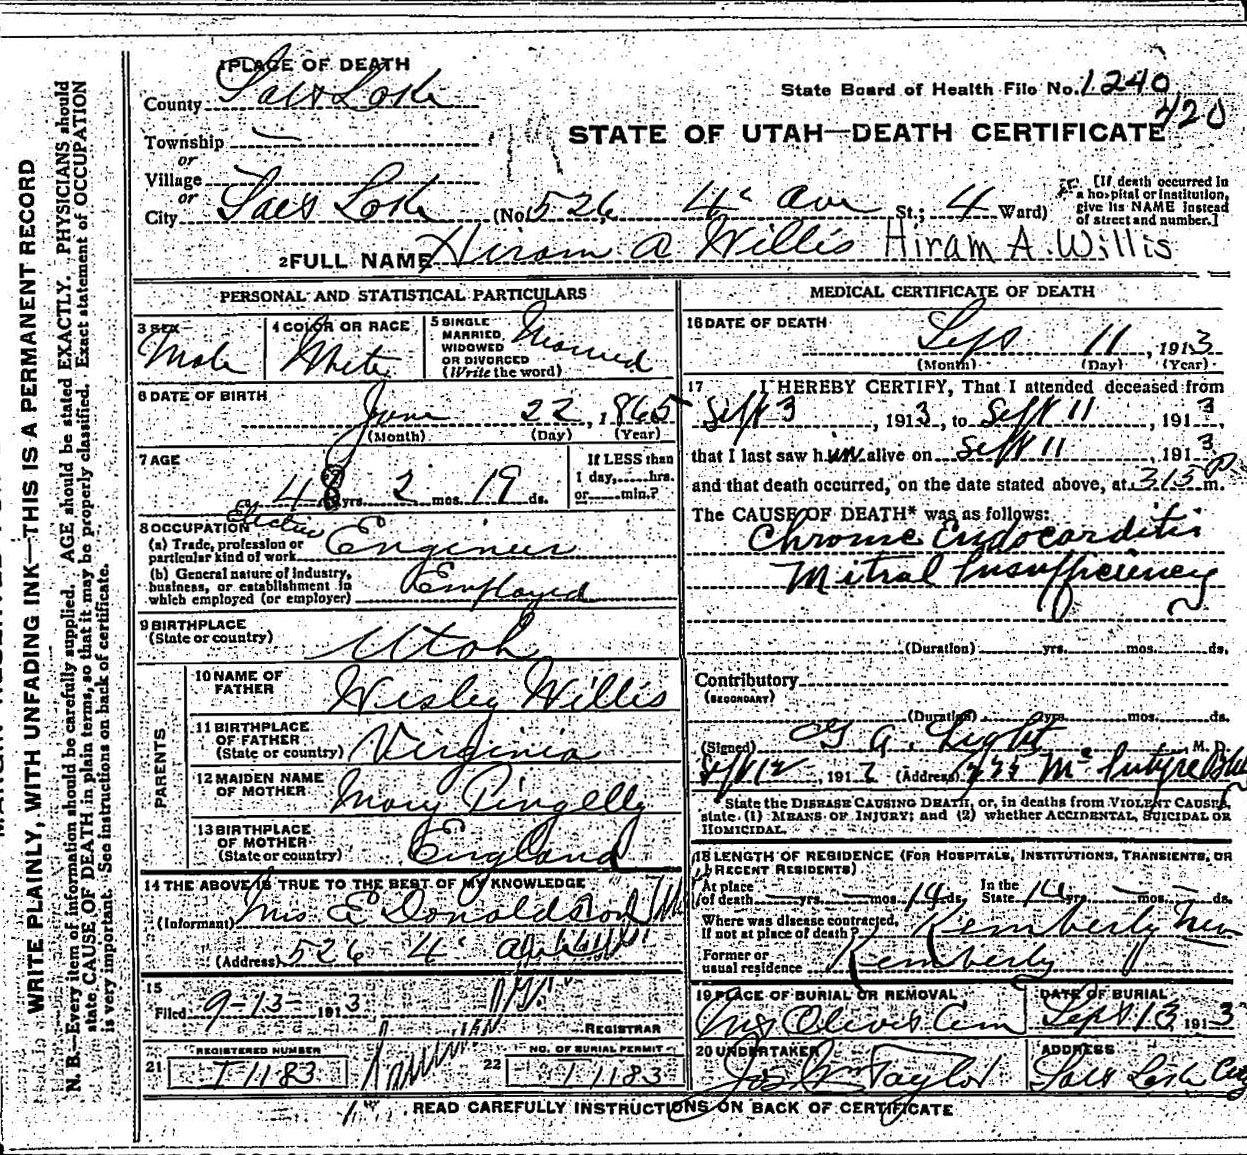 1 PLACE OF DEATH
County Salt Lake
State Board of Health File No. 1240
420
STATE OF UTAH—DEATH CERTIFICATE
Township —
or
Village
or
City Salt Lake (No. 526 4th Ave St.; 4 Ward)
[If death occurred in
a hospital or institution,
give its NAME instead
of street and number.]
2 FULL NAME Hiram A Willis Hiram A. Willis
PERSONAL AND STATISTICAL PARTICULARS
3 SEX Male
4 COLOR OR RACE White
5 SINGLE
MARRIED,
WIDOWED
OR DIVORCED
(Write the word) Married
6 DATE OF BIRTH June 22, 1865
(Month) (Day) (Year)
7 AGE 48 yrs. 2 mos. 19 ds.
If LESS than
1 day,......hrs.
or......min.?
8 OCCUPATION Electric
(a) Trade, profession or
particular kind of work Engineer
(b) General nature of industry,
business, or establishment in
which employed (or employer) Employed
9 BIRTHPLACE
(State or country) Utah
PARENTS
10 NAME OF
FATHER Wesley Willis
11 BIRTHPLACE
OF FATHER
(State or country) Virginia
12 MAIDEN NAME
OF MOTHER Mary Pingelly
13 BIRTHPLACE
OF MOTHER
(State or country) England
14 THE ABOVE IS TRUE TO THE BEST OF MY KNOWLEDGE
(Informant) Mrs E Donaldson
(Address) 526 - 4
15
Filed 9-13- 1913
REGISTRAR
21 REGISTERED NUMBER
I 1183
22 NO. OF BURIAL PERMIT
I 1183
MEDICAL CERTIFICATE OF DEATH
16 DATE OF DEATH Sept 11, 1913
(Month) (Day) (Year)
17 I HEREBY CERTIFY, That I attended deceased from
Sept 3, 1913, to Sept 11, 1913,
that I last saw him alive on Sept 11, 1913
and that death occurred, on the date stated above, at 3.15 P m.
The CAUSE OF DEATH* was as follows:
Chronic Endocarditis
Mitral Insufficiency
(Duration) yrs. mos. ds.
Contributory
(SECONDARY)
(Duration) yrs. mos. ds.
(Signed) G A. Light, M. D.
Sept 12, 191 (Address) McIntyre Bld
State the DISEASE CAUSING DEATH, or, in deaths from VIOLENT CAUSES,
state (1) MEANS OF INJURY; and (2) whether ACCIDENTAL, SUICIDAL OR
HOMICIDAL.
18 LENGTH OF RESIDENCE (FOR HOSPITALS, INSTITUTIONS, TRANSIENTS, OR
RECENT RESIDENTS)
At place
of death — yrs. — mos. 14 ds. In the
State 14 yrs. — mos. — ds.
Where was disease contracted,
If not at place of death? Kimberly Nev
Former or
usual residence Kimberly
19 PLACE OF BURIAL OR REMOVAL
Mt Olivet Cem
DATE OF BURIAL
Sept 13 1913
20 UNDERTAKER
Jos Wm Taylor
ADDRESS
Salt Lake City
READ CAREFULLY INSTRUCTIONS ON BACK OF CERTIFICATE
WRITE PLAINLY, WITH UNFADING INK—THIS IS A PERMANENT RECORD
N. B.—Every item of information should be carefully supplied. AGE should be stated EXACTLY. PHYSICIANS should
state CAUSE OF DEATH in plain terms, so that it may be properly classified. Exact statement of OCCUPATION
is very important. See instructions on back of certificate.